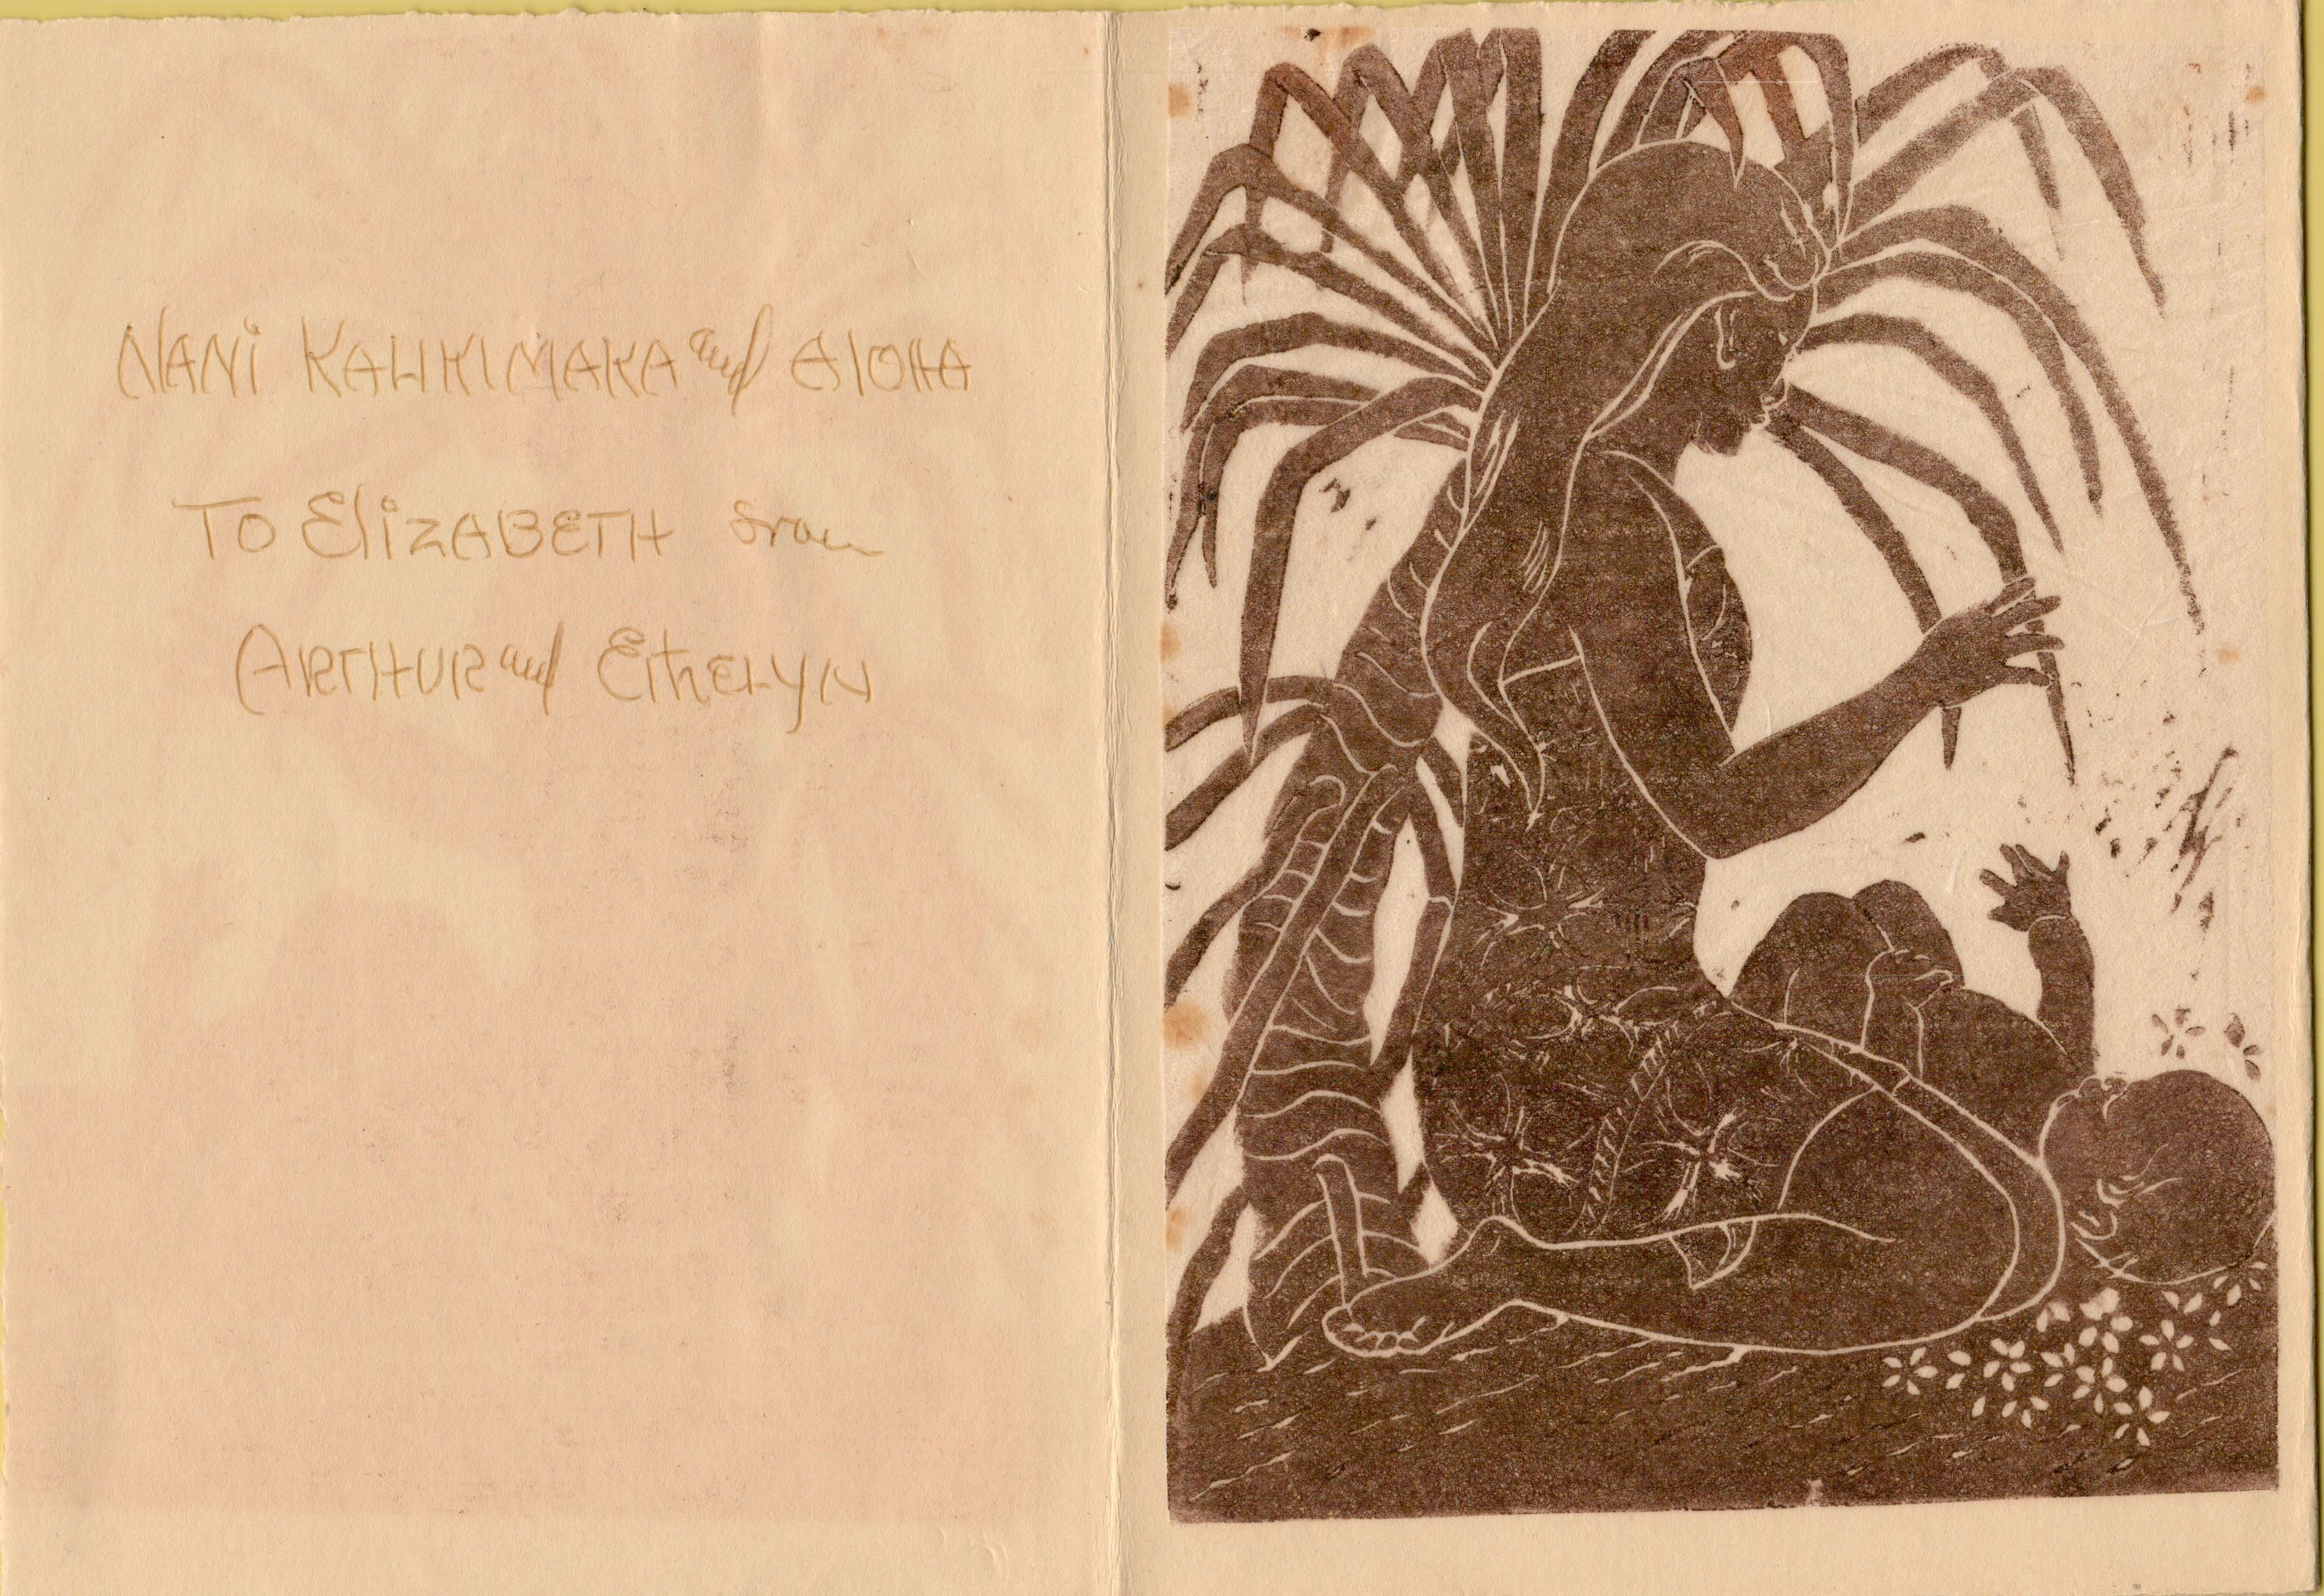 NANI KALIKIMAKA and AlOHA
TO ElizABETH from
ARTHUR and EthElyN